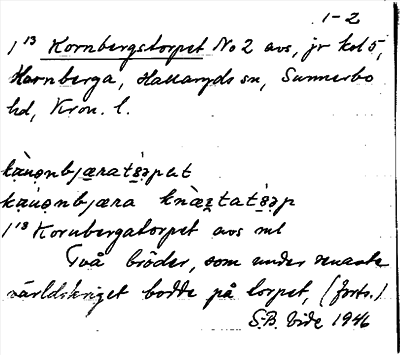 1-2
1¹³ Kornbergstorpet No 2 avs, jr kol 5,
Hornberga, Hallaryds sn, Sunnerbo
hd, Kron. l.
1¹³ Kornbergatorpet avs ml
Två bröder, som under senaste
världskriget bodde på torpet, (forts.)
S.B. Vide 1946